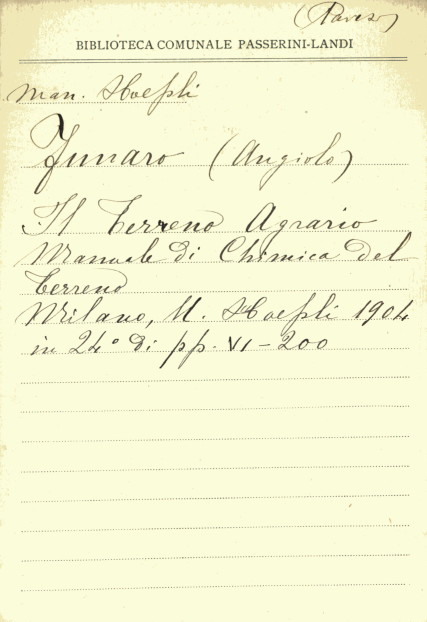 (Pares)
BIBLIOTECA COMUNALE PASSERINI-LANDI
Man. Hoepli
Funaro (Angiolo)
Il Terreno Agrario
Manuale di Chimica del
Terreno
Milano, U. Hoepli 1904
in 24° di pp. VI-200